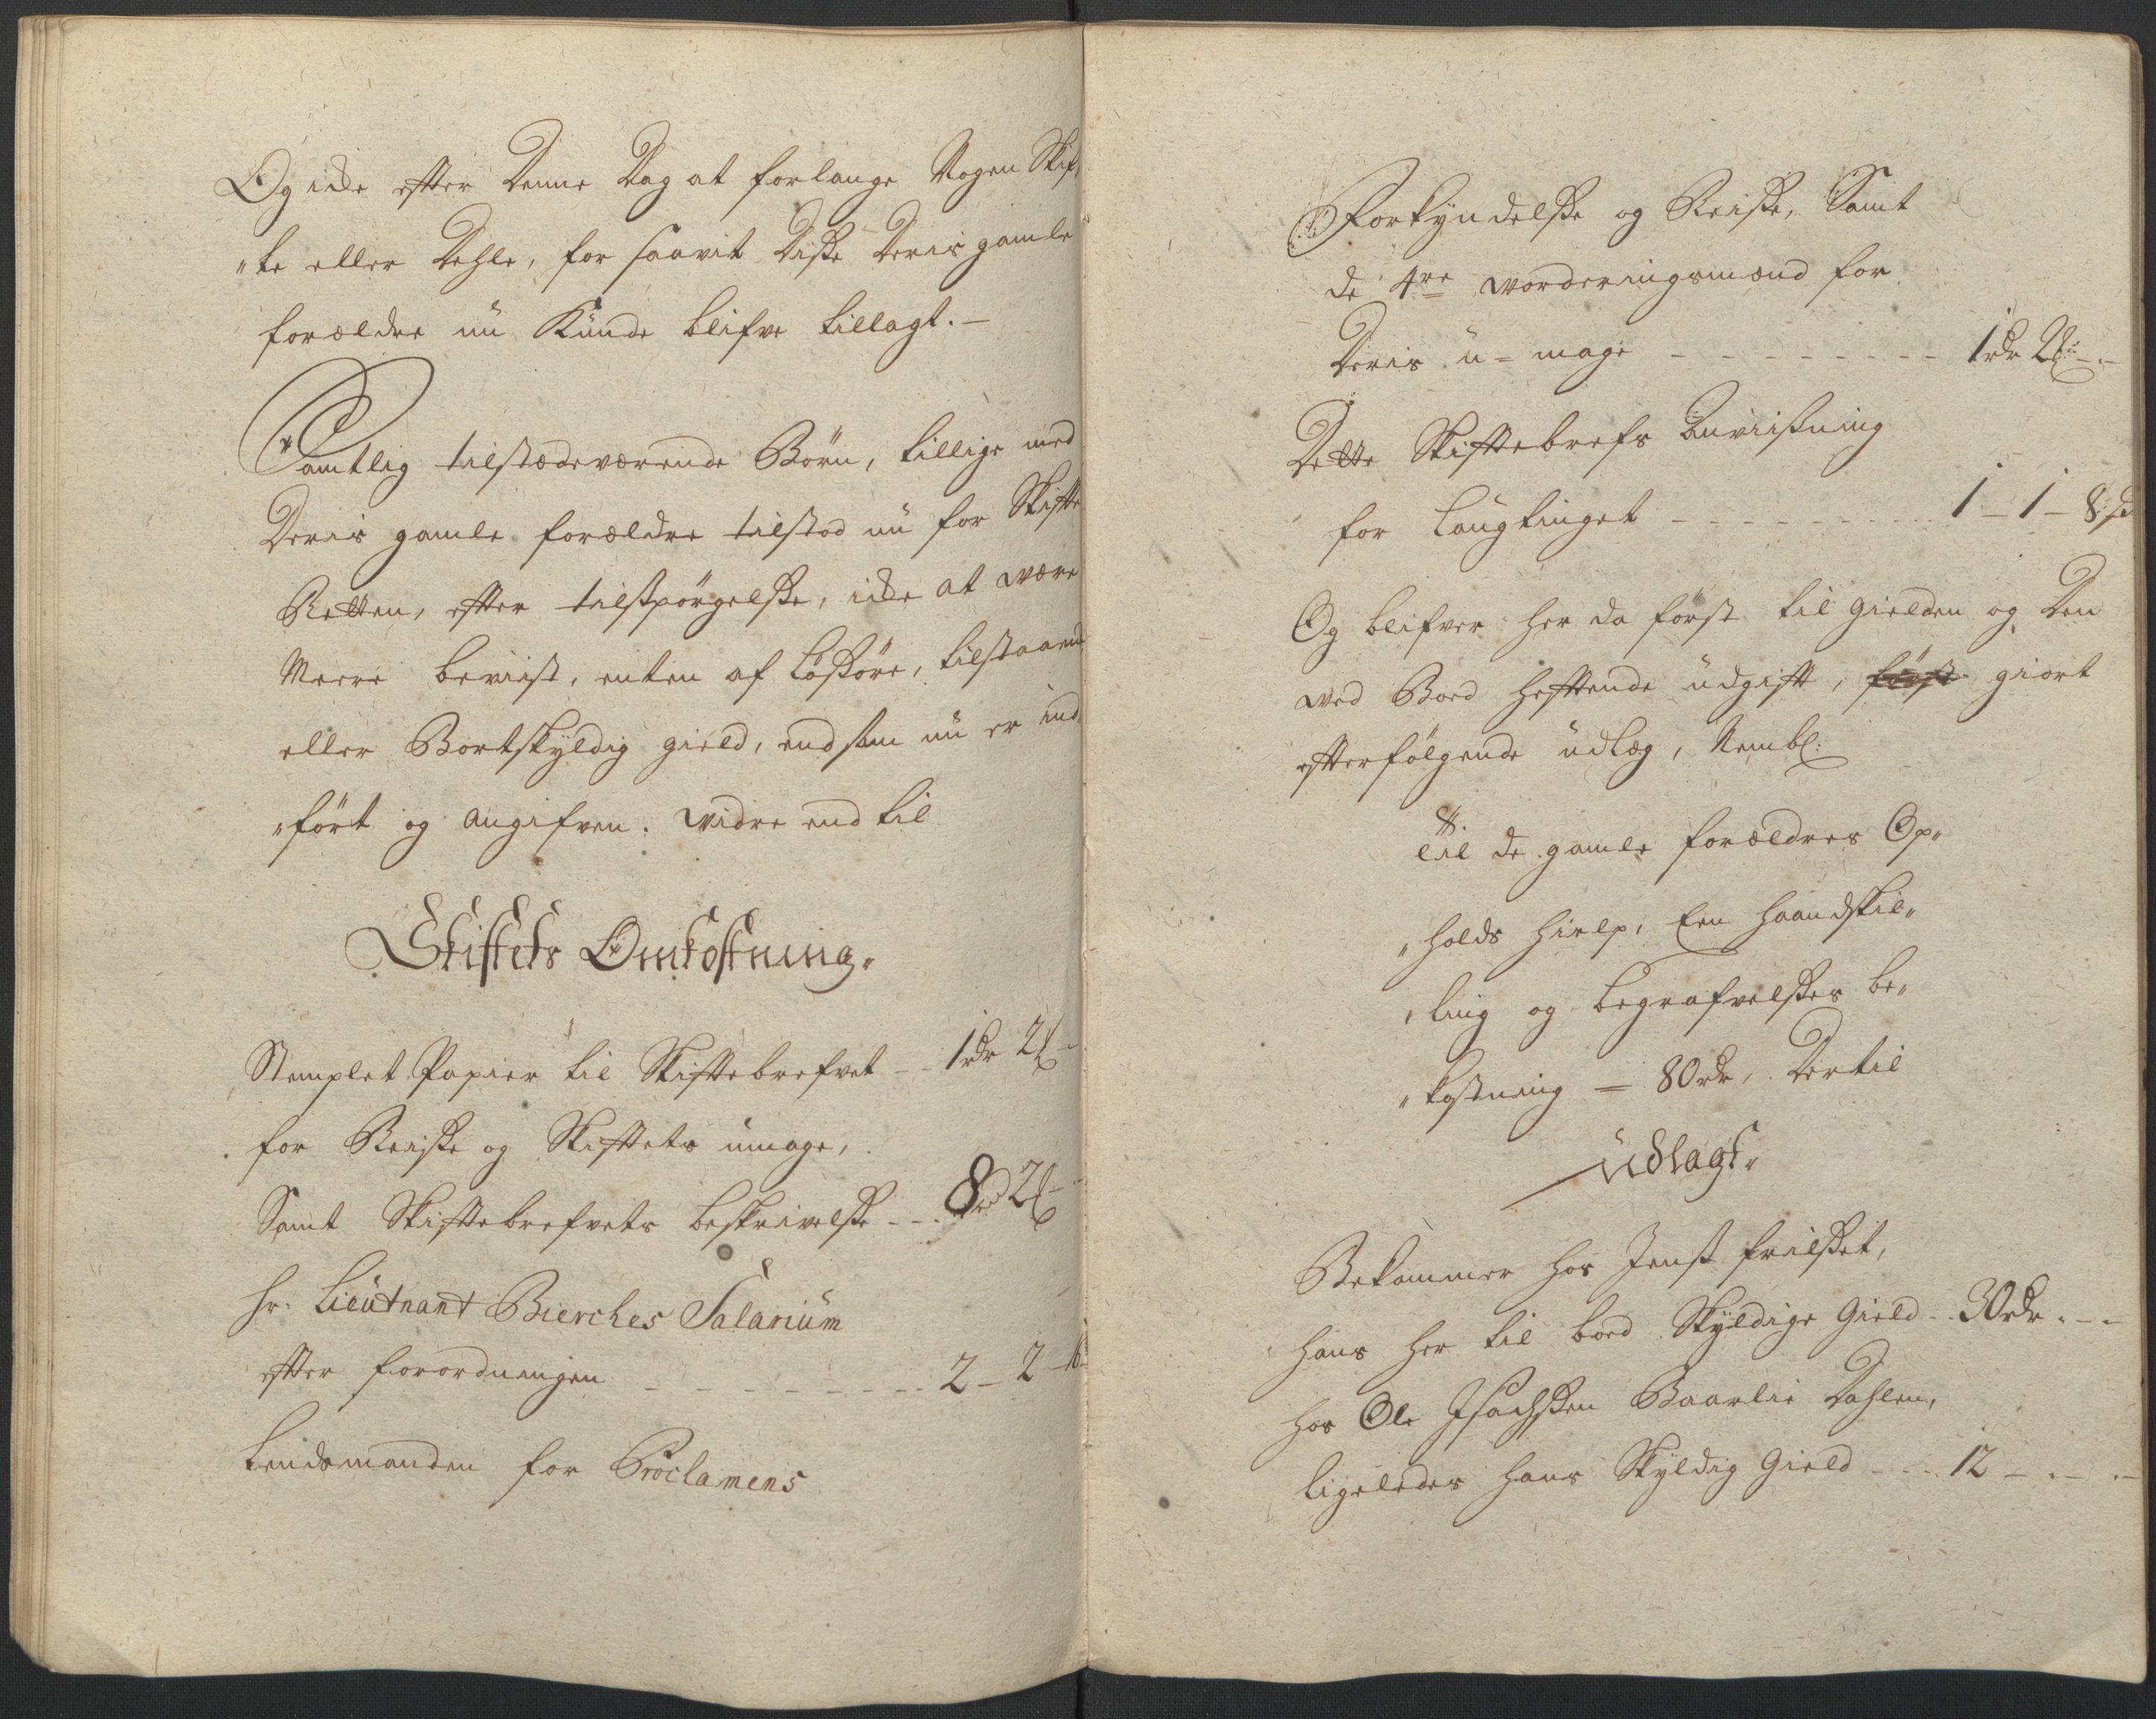 Og icke efter Denne Dag at forlange Nogen Skif„
„te eller Dehle, for saavit Disse Deris gamle
forældre nu Kunde blifve tillagt. —
Samtlig tilstædeværende Börn, tillige med
Deris gamle forældre tilstod nu for Skifte
Retten, efter tilspörgelse, icke at være
Meere beviist, enten af Lösöre, tilstaaend
eller Bortskyldig gield, end som nu er ind„
„fört og angifven. widre end til
Skiftets Omkostning„
Stemplet Papier til Skiftebrefvet - - 1 rdr 2
for Reise og Skiftets umage,
Samt Skiftebrefvets beskrivelse - - . 8 rdr 2
Hr. Lieutnant Bierches Salarium
efter forordningen - - - - - - - - - 2 — 2 — 16
Lendsmanden for Proclamens
Forkyndelse og Reise, Samt
de 4re worderingsmænd for
Deris u-mage - - - - - - - - 1 rdr 2
Dette Skiftebrefs Anviisning
for Laugtinget - - - - - - - - 1 — 1 — 8 s
Og blifver her da först til gielden og Den
wed Boed heftende udgift, först giort
efterfölgende udlæg, Nembl:
Til de gamle forældres Op„
„holds hielp, Een haandskil„
„ling og begrafvelses be„
„kostning — 80 rdr, Dertil
Udlagt„
Bekommer hos Jens
hans her til boed Skyldige Gield - - 30 rdr . - -
hos Ole Isachsen Baarlie Dahlen,
ligeledes hans Skyldig Gield - - - . 12 — . — . —